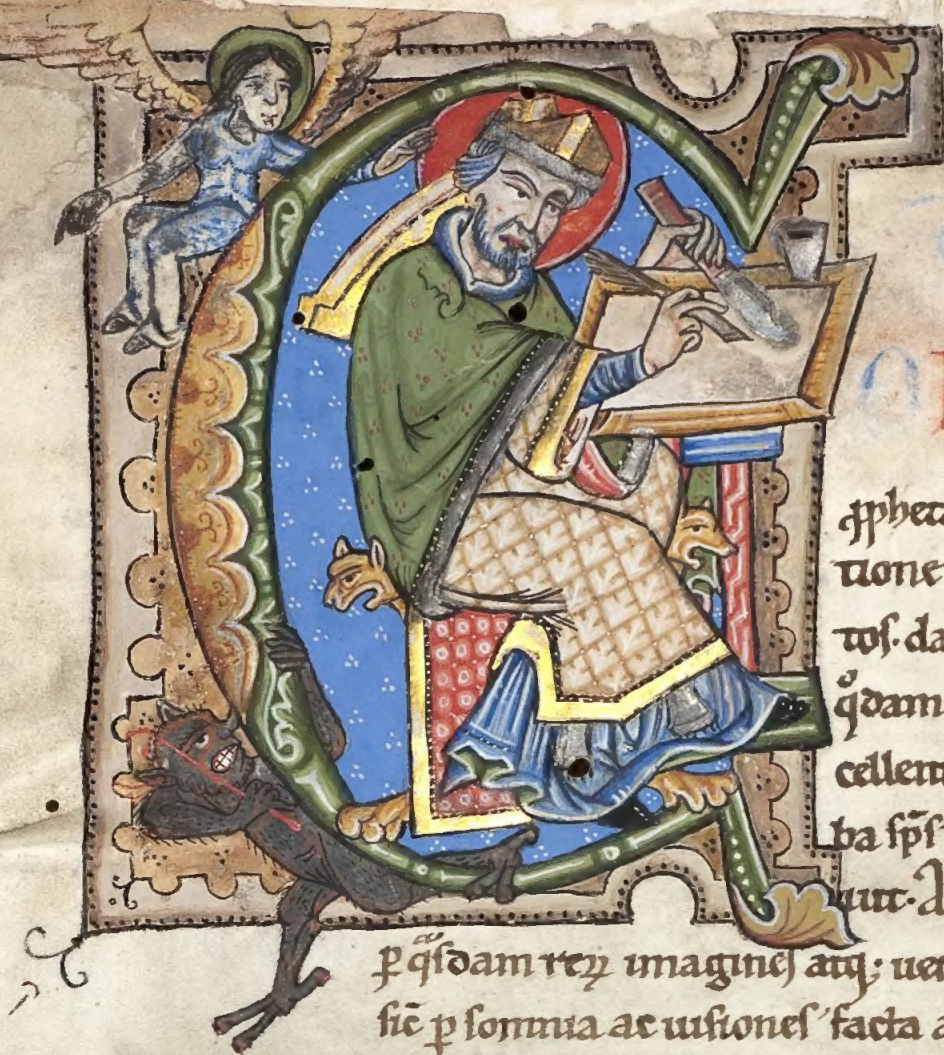 ꝓphet
tione
toſ. da
q̊dam
cellent
ba ſp̄ſ
uit. A
ꝑ qͣſdam reꝝ imagineſ atq; ue
ſic̄ ꝑ ſomnia ac uiſioneſ facta a